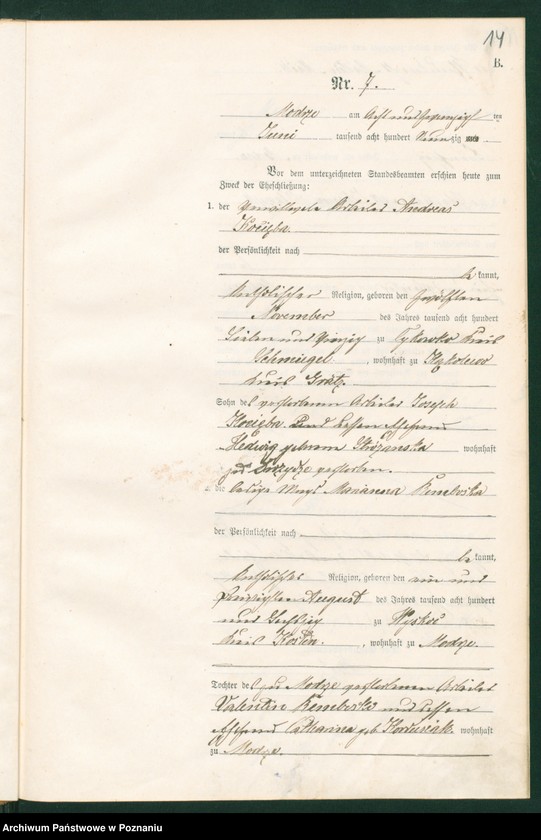 14
B.
Nr. 7.
Modrze am Acht und zwanzigsten
Juni tausend acht hundert Neunzig
Vor dem unterzeichneten Standesbeamten erschien heute zum
Zweck der Eheschließung:
1. der Arbeiter Andreas
der Persönlichkeit nach
be kannt,
katholischer Religion, geboren den zwölften
November des Jahres tausend acht hundert
Sieben und vierzig zu Kreis
Schmiegel, wohnhaft zu
Kreis Grätz.
Sohn des verstorbenen Arbeiter Joseph
und dessen Ehefrau
Hedwig geborene wohnhaft
zu verstorben.
2. die ledige Magd Marianna
der Persönlichkeit nach
be kannt,
katholischer Religion, geboren den ein und
zwanzigsten August des Jahres tausend acht hundert
und sechszig zu
Kreis Kosten. , wohnhaft zu Modrze.
Tochter des zu Modrze verstorbenen Arbeiter
Valentin und dessen
Ehefrau Catharina geb. wohnhaft
zu Modrze.
Archiwum Państwowe w Poznaniu